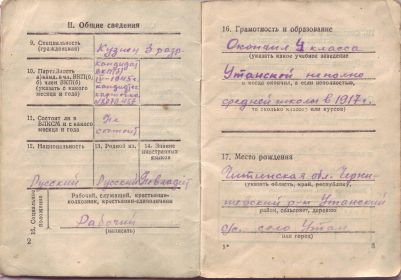 II. Общие сведения
9. Специальность
(гражданская)
Кузнец 3 разр.
10. Парт.
б) член ВКП(б)
(указать с какого
месяца и года)
кандидат
ВКП(б)
11. Состоит ли в
ВЛКСМ и с какого
месяца и года
Не
состоит
12. Национальность
13. Родной яз.
14. Знание
иностранных
языков
Русский
Русский
Не владеет
15. Социальное
положение
Рабочий, служащий, крестьянин-
колхозник, крестьянин-единоличник
Рабочий
(вписать)
2
16. Грамотность и образование
Окончил 4 класса
(указать какое учебное заведение
Утанской неполно
и когда окончил, а если неполностью,
средней школы в 1917 г.
то сколько классов или курсов)
17. Место рождения
Читинская обл. Черны-
(указать область, край, республику,
шевский р-н Утанский
район, сельсовет, деревню
с/с. село Утан
или город)
1*
3